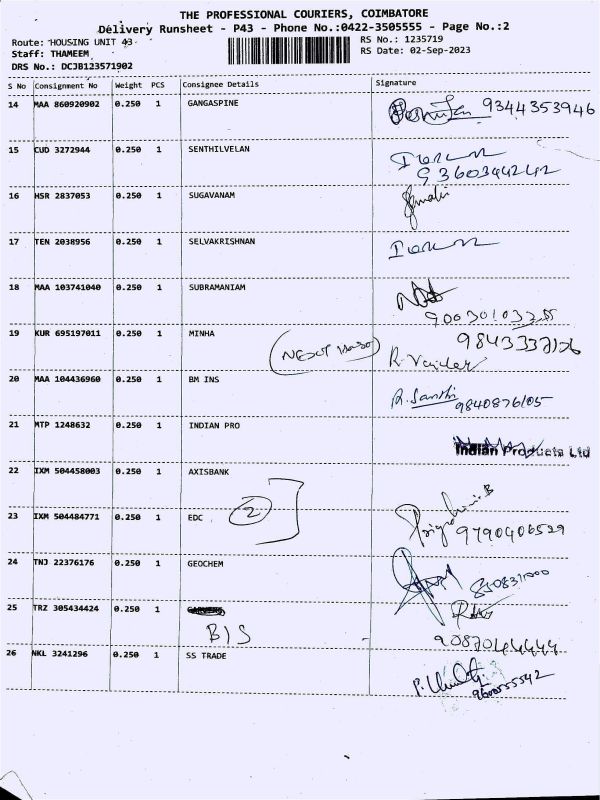 THE PROFESSIONAL COURIERS, COIMBATORE
Delivery Runsheet - P43 - Phone No.:0422-3505555 - Page No.:2
Route: HOUSING UNIT 43 RS No.: 1235719
Staff: THAMEEM RS Date: 02-Sep-2023
DRS No.: DCJB123571902
S No Consignment No Weight PCS Consignee Details Signature
14 MAA 860920902 0.250 1 GANGASPINE 9344353946
15 CUD 3272944 0.250 1 SENTHILVELAN
9360344242
16 HSR 2837053 0.250 1 SUGAVANAM
17 TEN 2038956 0.250 1 SELVAKRISHNAN
18 MAA 103741040 0.250 1 SUBRAMANIAM
19 KUR 695197011 0.250 1 MINHA
20 MAA 104436960 0.250 1 BM INS R. Santhi
9840876105
21 MTP 1248632 0.250 1 INDIAN PRO
Indian Products Ltd
22 IXM 504458003 0.250 1 AXISBANK
23 IXM 504484771 0.250 1 EDC 2
9790406529
24 TNJ 22376176 0.250 1 GEOCHEM
25 TRZ 305434424 0.250 1
B/S
9087044444
26 NKL 3241296 0.250 1 SS TRADE
9600555542